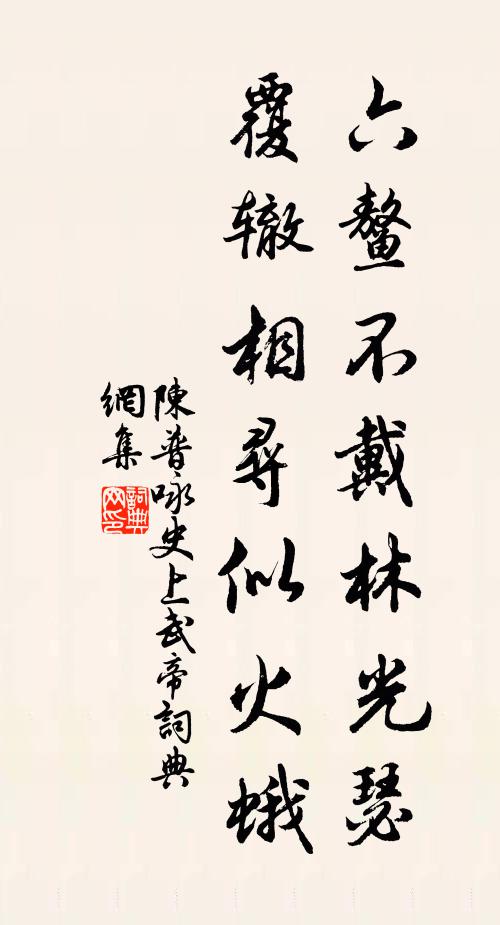 六鳌不戴林光瑟
覆辙相寻似火蛾
陳普咏史上武帝詞典
網集
詞典網印